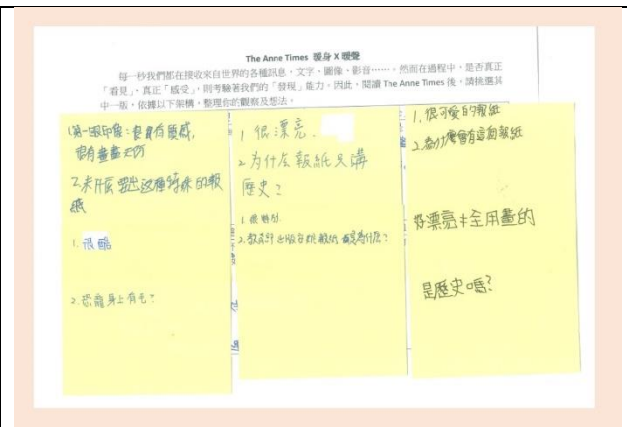 The Anne Times 暖身 X 暖聲
每一秒我們都在接收來自世界的各種訊息，文字、圖像、影音……。然而在過程中，是否真正
「看見」，真正「感受」，則考驗著我們的「發現」能力。因此，閱讀 The Anne Times 後，請挑選其
中一版，依據以下架構，整理你的觀察及想法。
1.第一眼印象:有質感,
很有畫畫
2.為什麼要出这種特殊的報
紙
1. 很酷
2.恐龍身上有毛?
1 很漂亮.
2.为什么報紙只講
歷史?
1.很特別.
1.很可愛的報紙
2.為什麼會有這個報紙
好漂亮 全用畫的
是歷史嗎?